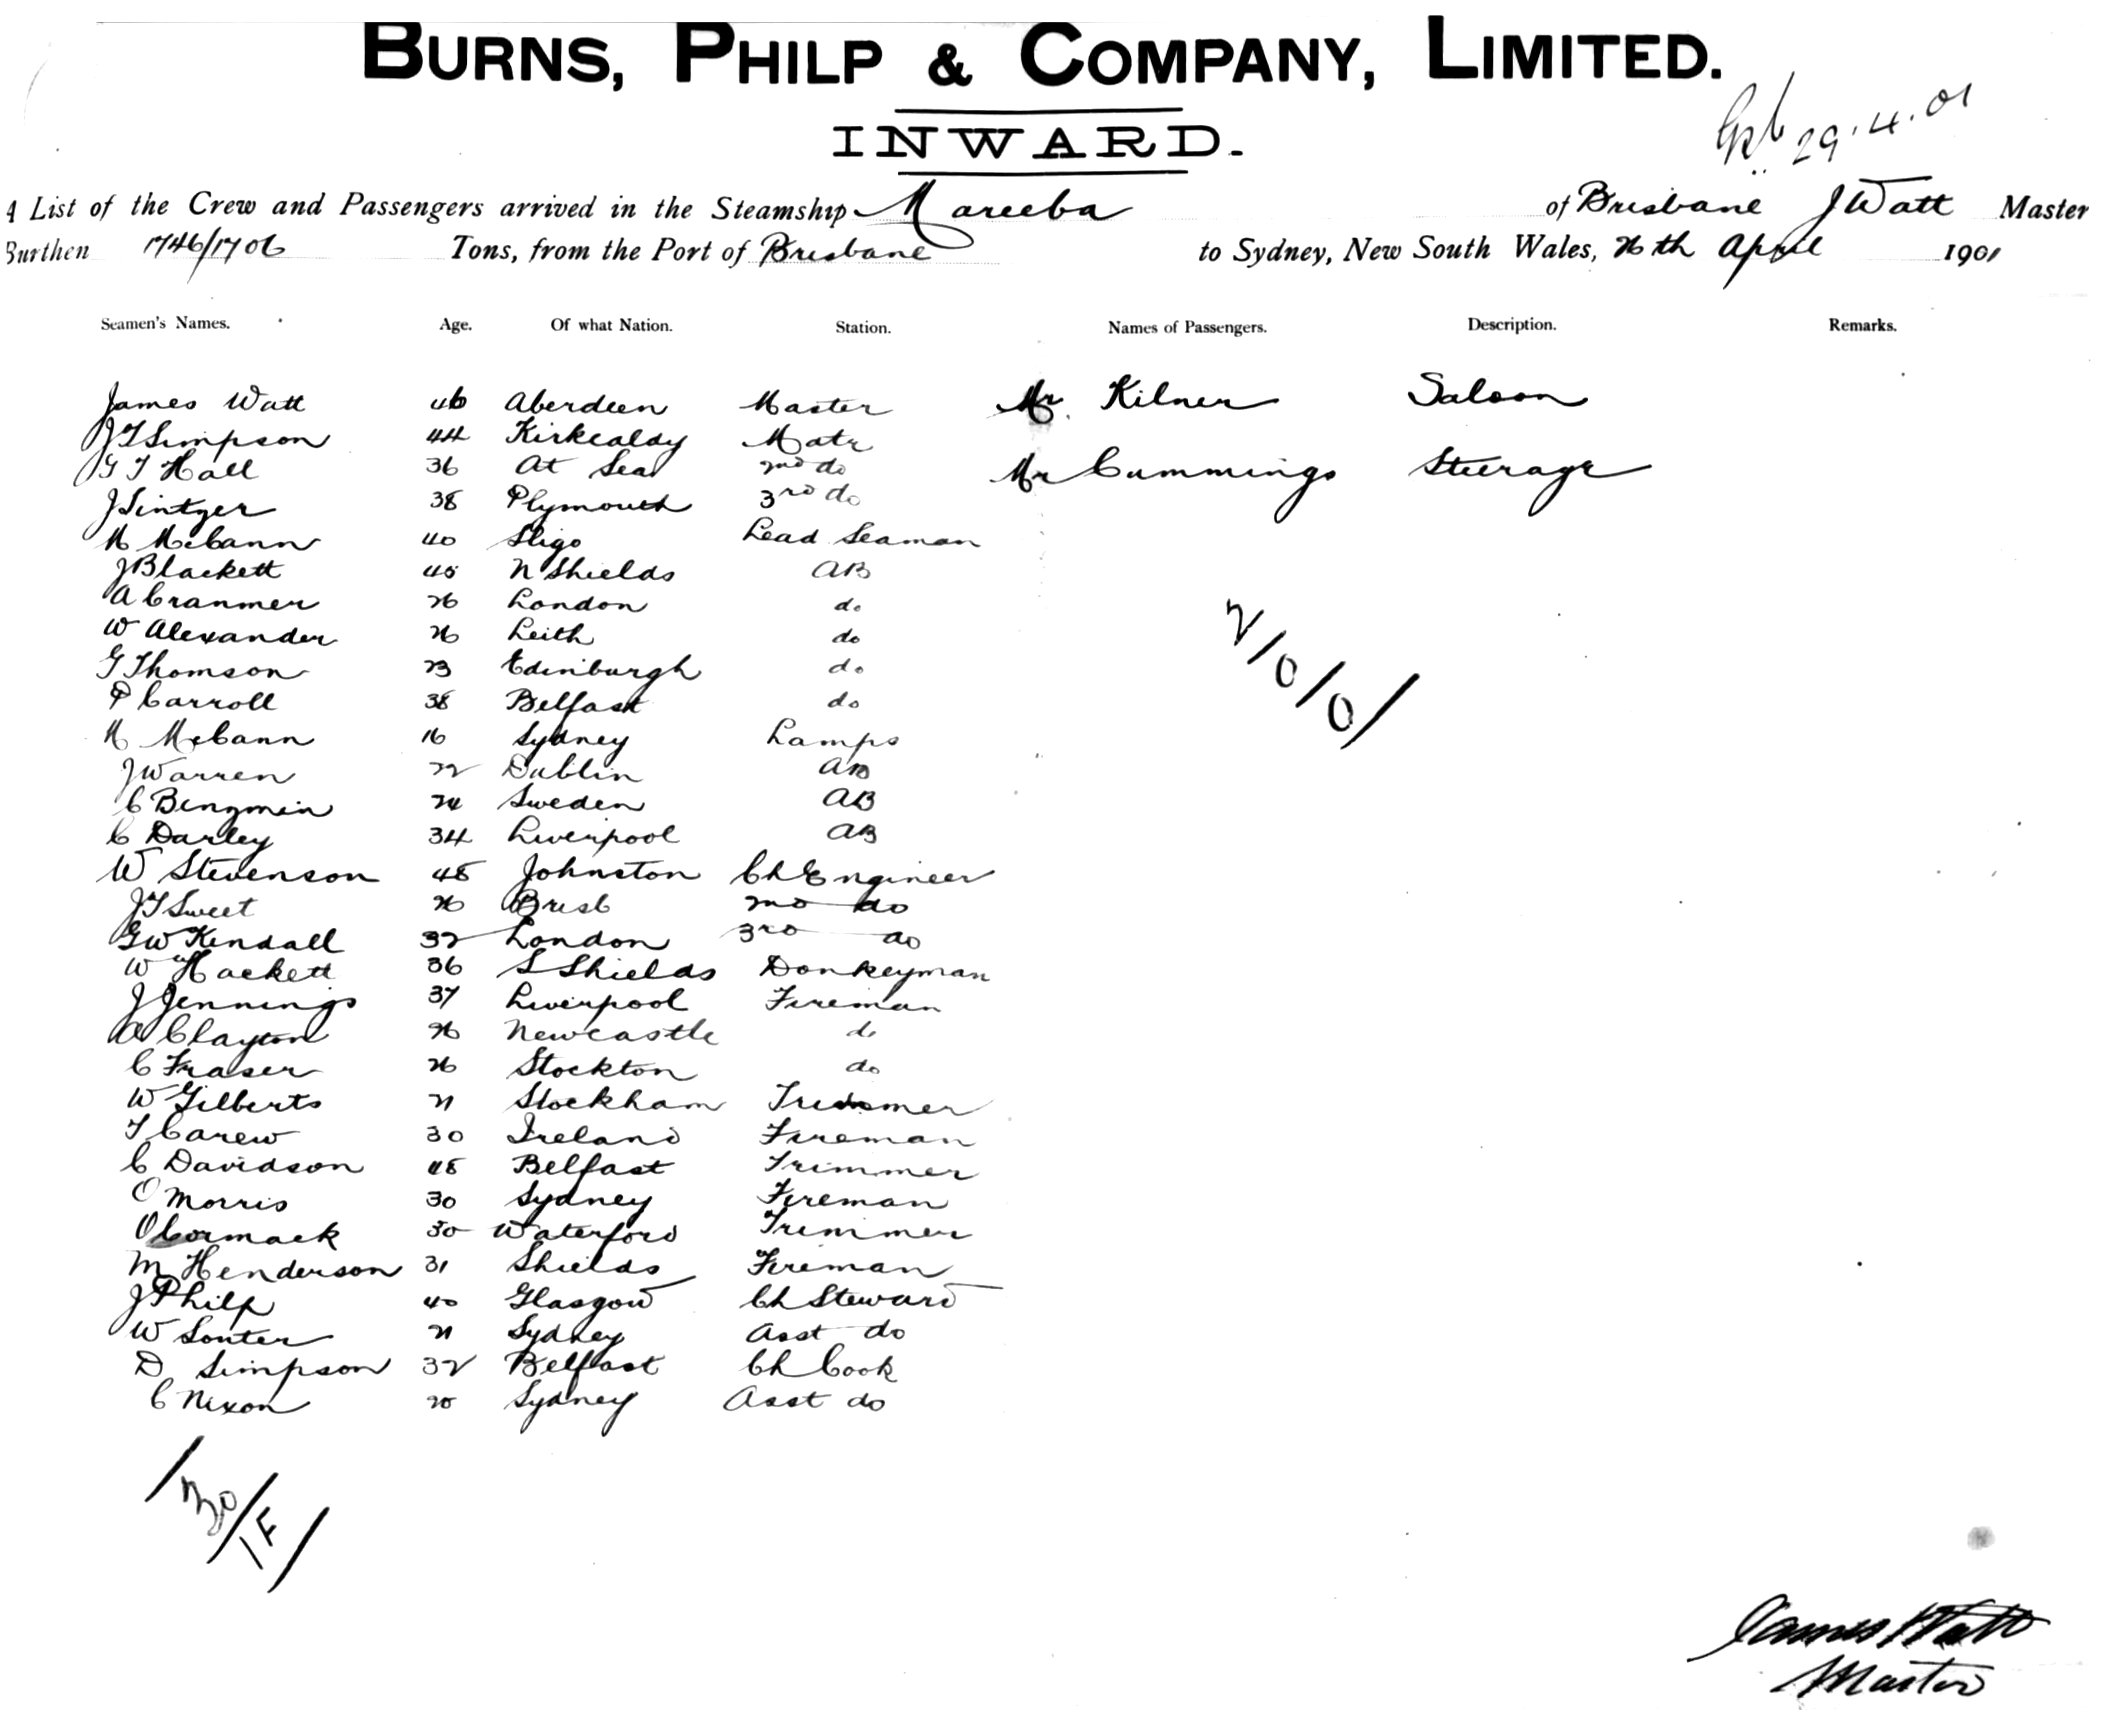 BURNS, PHILP & COMPANY, LIMITED.
INWARD.
29.4.01
A List of the Crew and Passengers arrived in the Steamship Mareeba of Brisbane J Watt Master
Burthen 1746/1706 Tons, from the Port of Brisbane to Sydney, New South Wales, 26th April 1901
Seamen's Names. Age. Of what Nation. Station. Names of Passengers. Description. Remarks.
James Watt 46 Aberdeen Master Mr. Kilner Saloon
J T Simpson 44 Kirkcaldy Mate
G T Hall 36 At Sea 2nd do Mr Cummings Steerage
J Sintzer 38 Plymouth 3rd do
M McCann 40 Sligo Lead Seaman
J Blackett 45 N Shields AB
A Cranmer 26 London do
W Alexander 26 Leith do
G Thomson 23 Edinburgh do
P Carroll 38 Belfast do
M McCann 16 Sydney Lamps
J Warren 22 Dublin AB
C Bengmin 24 Sweden AB
C Darley 34 Liverpool AB
W Stevenson 48 Johnston Ch Engineer
J T Sweet 26 Brisb 2nd do
G W Kendall 32 London 3rd do
W Hackett 36 S Shields Donkeyman
J Jennings 37 Liverpool Fireman
A Clayton 26 Newcastle do
C Fraser 26 Stockton do
W Gilberts 21 Stockham Trimmer
T Carew 30 Ireland Fireman
C Davidson 48 Belfast Trimmer
O Morris 30 Sydney Fireman
O Cormack 30 Waterford Trimmer
M Henderson 31 Shields Fireman
J Philp 40 Glasgow Ch Steward
W Souter 21 Sydney Asst do
D Simpson 32 Belfast Ch Cook
C Nixon 20 Sydney Asst do
2/0/0/
/30/1F/
James Watt
Master